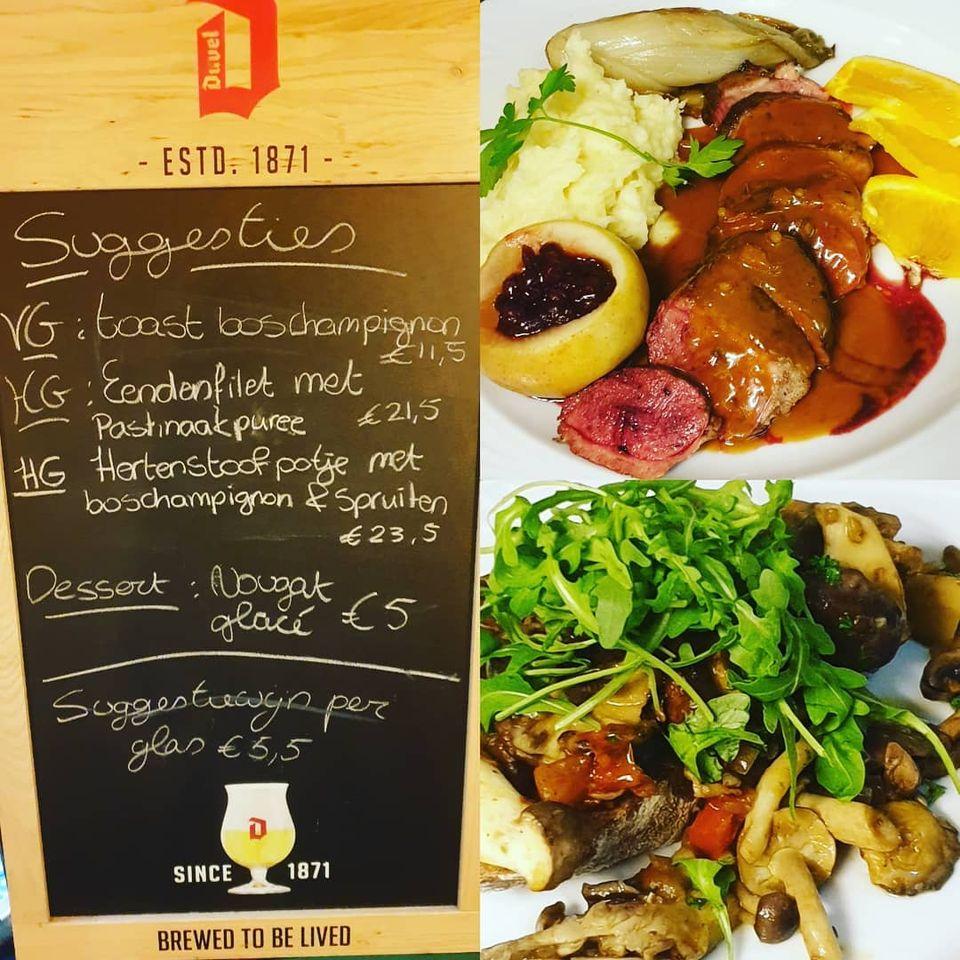 Duvel
- ESTD. 1871 -
Suggesties
VG : toast boschampignon
€ 11,5
HG : Eendenfilet met
Pastinaakpuree € 21,5
HG Hertenstoofpotje met
boschampignon & Spruiten
€ 23,5
Dessert : Nougat
glacé € 5
Suggestiewijn per
glas € 5,5
D
SINCE 1871
BREWED TO BE LIVED